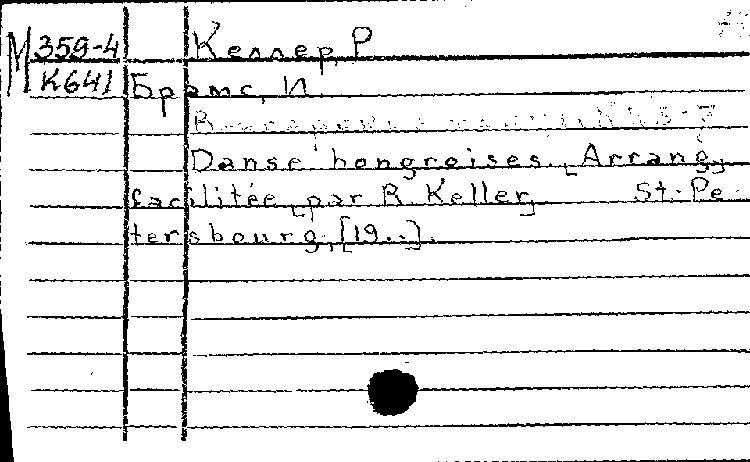 М 359-4 Келлер, Р
К641 Брамс, И.
Danse hongroises. [Arrang.
facilitée, par R. Keller] St.-Pe-
tersbourg, [19..].